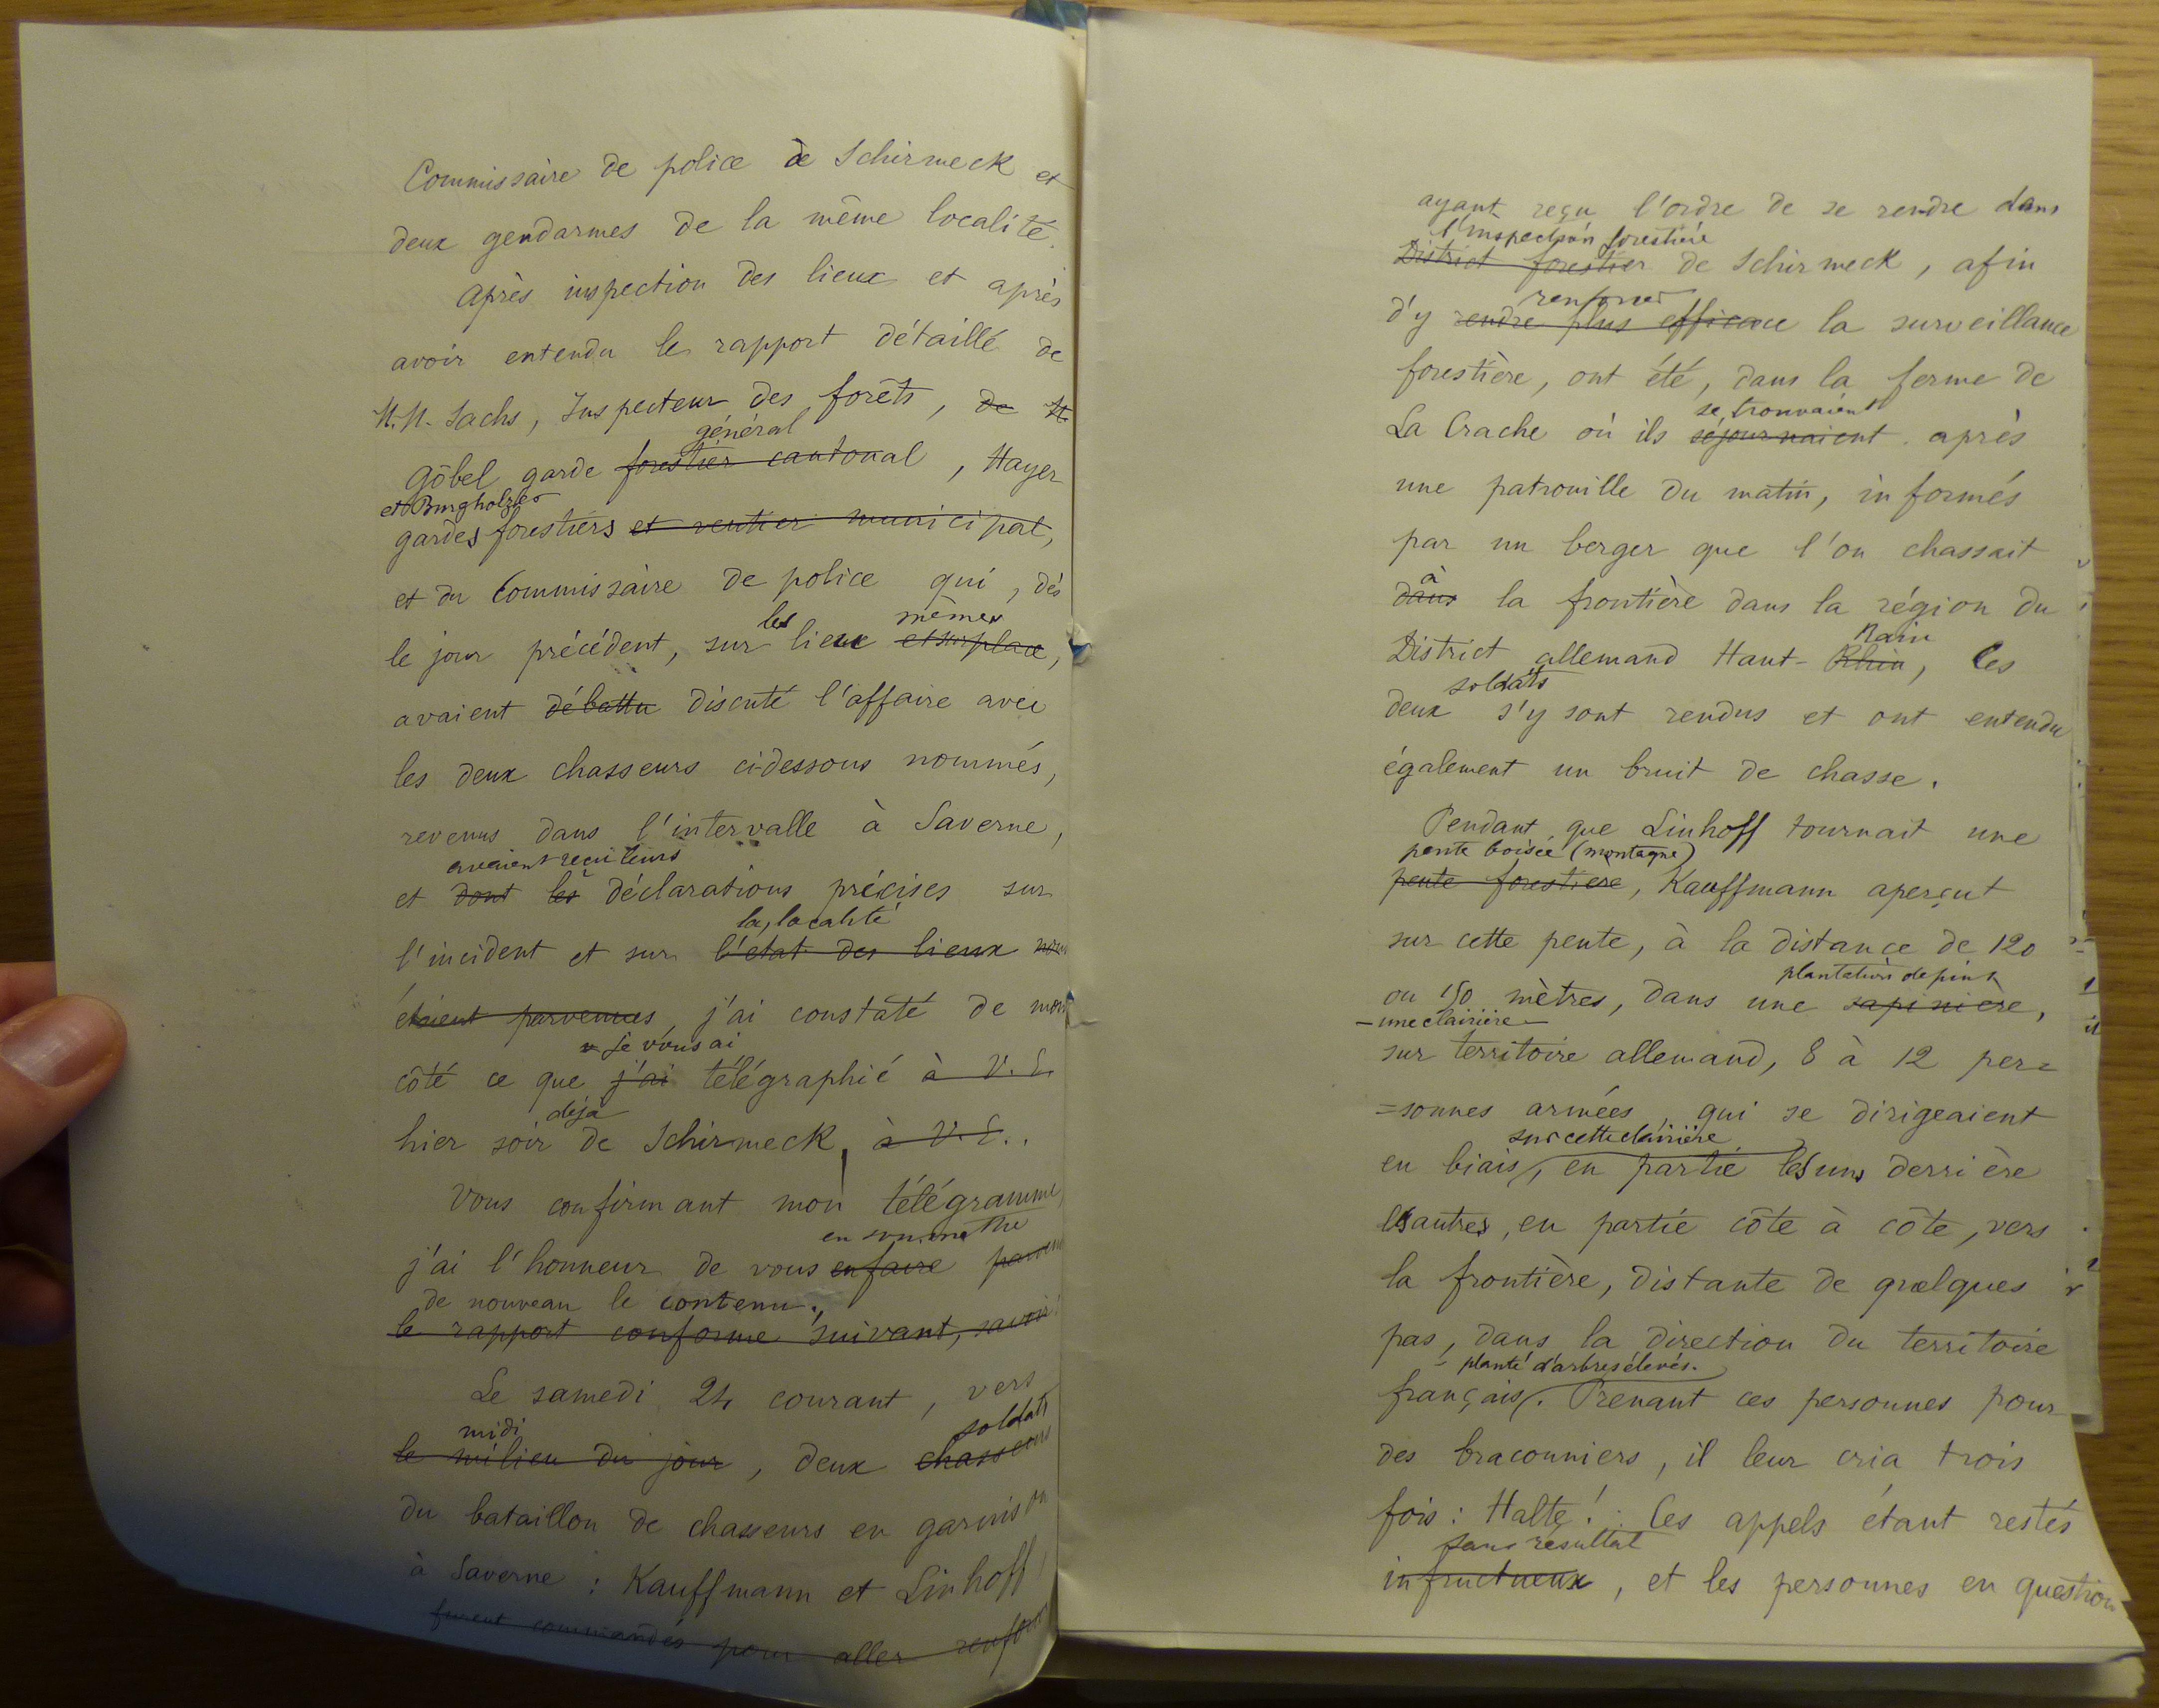 Commissaire de police de Schirmeck et
deux gendarmes de la même localité.
Après inspection des lieux et après
avoir entendu le rapport détaillé de
M.M. Sachs, Inspecteur des forêts, de M.
général
Göbel garde forestier cantonal, Hayer
et Burgholzer
gardes forestiers et rentier municipal,
et du Commissaire de police qui, dès
les mêmes
le jour précédent, sur lieux et sur place,
avaient débattu discuté l'affaire avec
les deux chasseurs ci-dessous nommés,
revenus dans l'intervalle à Saverne,
avaient reçu leurs
et dont les déclarations précises sur
la localité
l'incident et sur l'état des lieux nous
étaient parvenues, j'ai constaté de mon
je vous ai
côté ce que j'ai télégraphié à V. E.
déjà
hier soir de Schirmeck, à V. E..
Vous confirmant mon télégramme,
en soumettre
j'ai l'honneur de vous en faire
de nouveau le contenu.,
le rapport conforme suivant, savoir:
Le samedi 24 courant, vers
midi soldats
le milieu du jour, deux chasseurs
du bataillon de chasseurs en garnison
à Saverne: Kauffmann et Linhoff
furent commandés pour aller renforcer
ayant reçu l'ordre de se rendre dans
l'inspection forestière
District forestier de Schirmeck, afin
renforcer
d'y rendre plus efficace la surveillance
forestière, ont été, dans la ferme de
se trouvaient
La Crache où ils séjournaient après
une patrouille du matin, informés
par un berger que l'on chassait
à
dans la frontière dans la région du
Rain
District allemand Haut-Rhin, les
soldats
deux s'y sont rendus et ont entendu
également un bruit de chasse.
Pendant que Linhoff tournait une
pente boisée (montagne)
pente forestière, Kauffmann aperçut
sur cette pente, à la distance de 120
plantation de pins
ou 150 mètres, dans une sapinière,
- une clairière -
sur territoire allemand, 8 à 12 per=
=sonnes armées, qui se dirigeaient
sur cette clairière
en biais, en partie les uns derrière
les autres, en partie côte à côte, vers
la frontière, distante de quelques
pas, dans la direction du territoire
- planté d'arbres élevés.
français. Prenant ces personnes pour
des braconniers, il leur cria trois
fois: Halte! Ces appels étant restés
sans résultat
infructueux, et les personnes en question